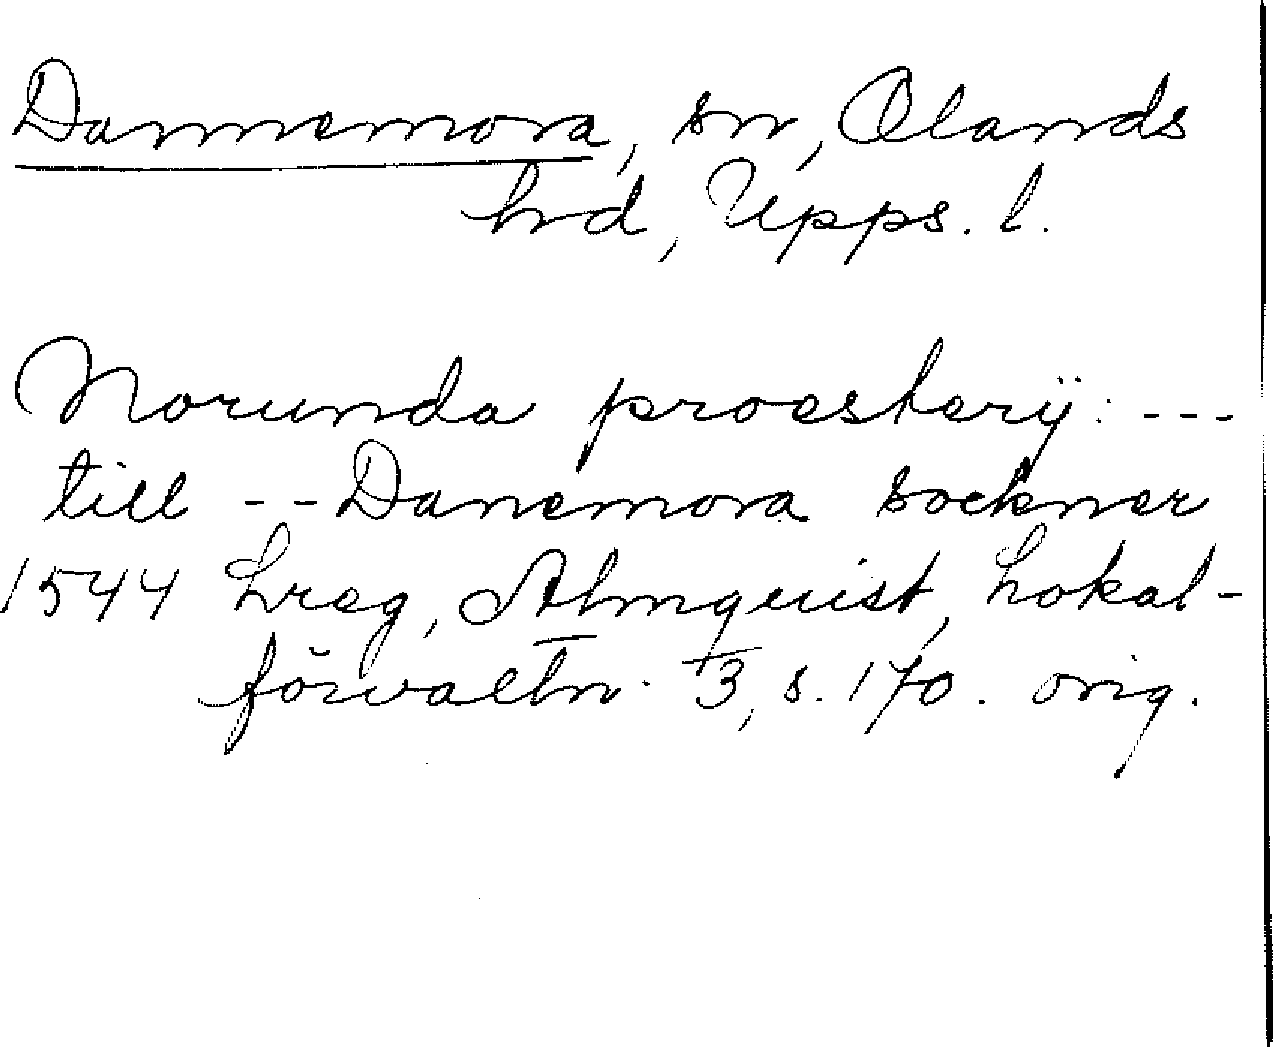 Dannemora, sn, Olands
hd, Upps. l.
Norunda proesterij: ---
till -- Danemora sockner
1544 Lreg, Almquist, Lokal-
förvaltn. I3, s. 170. orig.